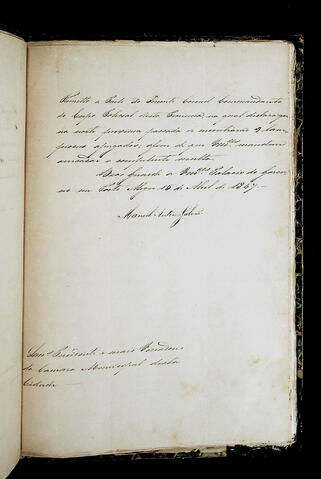 Remetto a Parte do Tenente Coronel Commandante
do Corpo Policial desta Provincia, na qual declara que
na noite proxima passada se encontrarão 9 lam-
peoens apagados, afim de que Vmces mandem
a competente multa.
Deos Guarde a Vmces Palacio do Gover-
no em Porto Alegre 14 de Abril de 1847.
Manoel Antonio Galvão
Senres Presidente e mais Vereadores
da Camara Municipal desta
Cidade